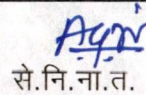 से.नि.ना.त.